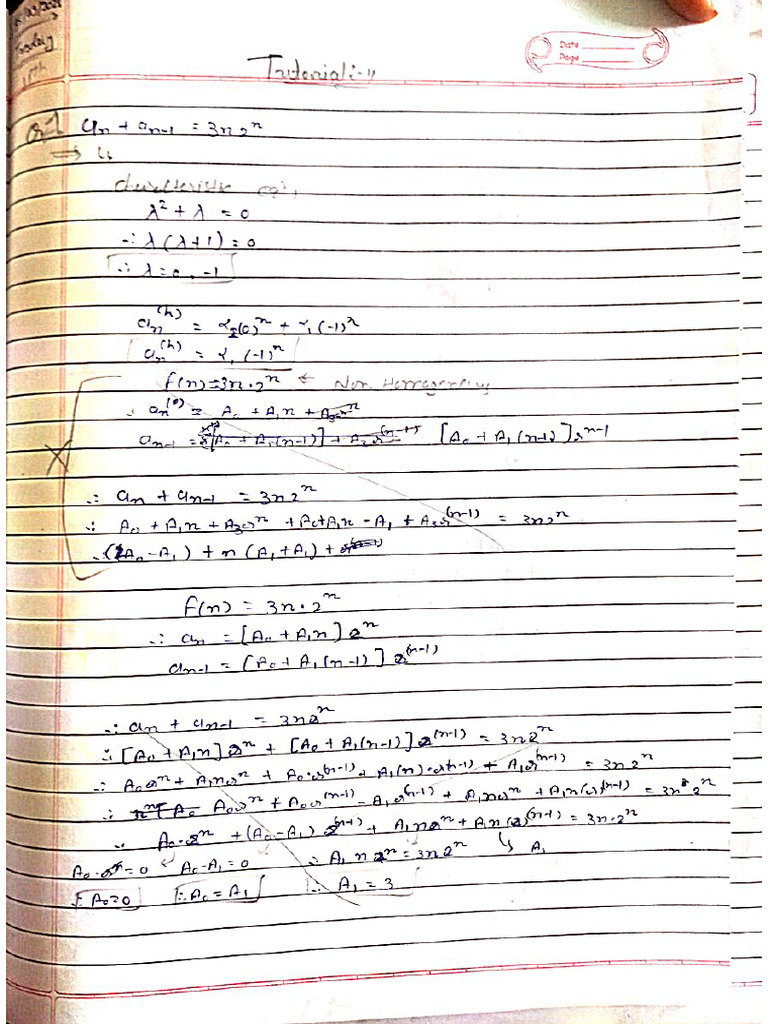 Tuesday
Date
Page
Tutorial:-11
Q-1 an + an-1 = 3n2ⁿ
⇒
characteristic eqⁿ,
λ² + λ = 0
∴ λ(λ+1) = 0
∴ λ = 0, -1
an⁽ʰ⁾ = α₂(0)ⁿ + α₁(-1)ⁿ
an⁽ʰ⁾ = α₁(-1)ⁿ
f(n) = 3n·2ⁿ ← Non Homogeneous
∴ an⁽ᵖ⁾ = A₀ + A₁n +
an-1 = [A₀ + A₁(n-1)] + A₂ [A₀ + A₁(n-1)]2ⁿ⁻¹
∴ an + an-1 = 3n2ⁿ
∴ A₀ + A₁n + A₂2ⁿ + A₀+A₁n - A₁ + A₂2⁽ⁿ⁻¹⁾ = 3n2ⁿ
∴ (2A₀ - A₁) + n(A₁ + A₁) +
f(n) = 3n·2ⁿ
∴ an = [A₀ + A₁n]2ⁿ
an-1 = [A₀ + A₁(n-1)]2⁽ⁿ⁻¹⁾
∴ an + an-1 = 3n2ⁿ
∴ [A₀ + A₁n]2ⁿ + [A₀ + A₁(n-1)]2⁽ⁿ⁻¹⁾ = 3n2ⁿ
∴ A₀2ⁿ + A₁n2ⁿ + A₀·2⁽ⁿ⁻¹⁾ + A₁(n)·2⁽ⁿ⁻¹⁾ + A₁2⁽ⁿ⁻¹⁾ = 3n2ⁿ
∴ A₀2ⁿ + A₀2⁽ⁿ⁻¹⁾ - A₁2⁽ⁿ⁻¹⁾ + A₁n2ⁿ + A₁n(2)⁽ⁿ⁻¹⁾ = 3n2ⁿ
∴ A₀·2ⁿ + (A₀ - A₁)2⁽ⁿ⁻¹⁾ + A₁n2ⁿ + A₁n(2)⁽ⁿ⁻¹⁾ = 3n·2ⁿ
A₀·2ⁿ = 0 A₀ - A₁ = 0 ∴ A₁n2ⁿ = 3n2ⁿ ↳ A₁
∴ A₀ = 0 ∴ A₀ = A₁ ∴ A₁ = 3